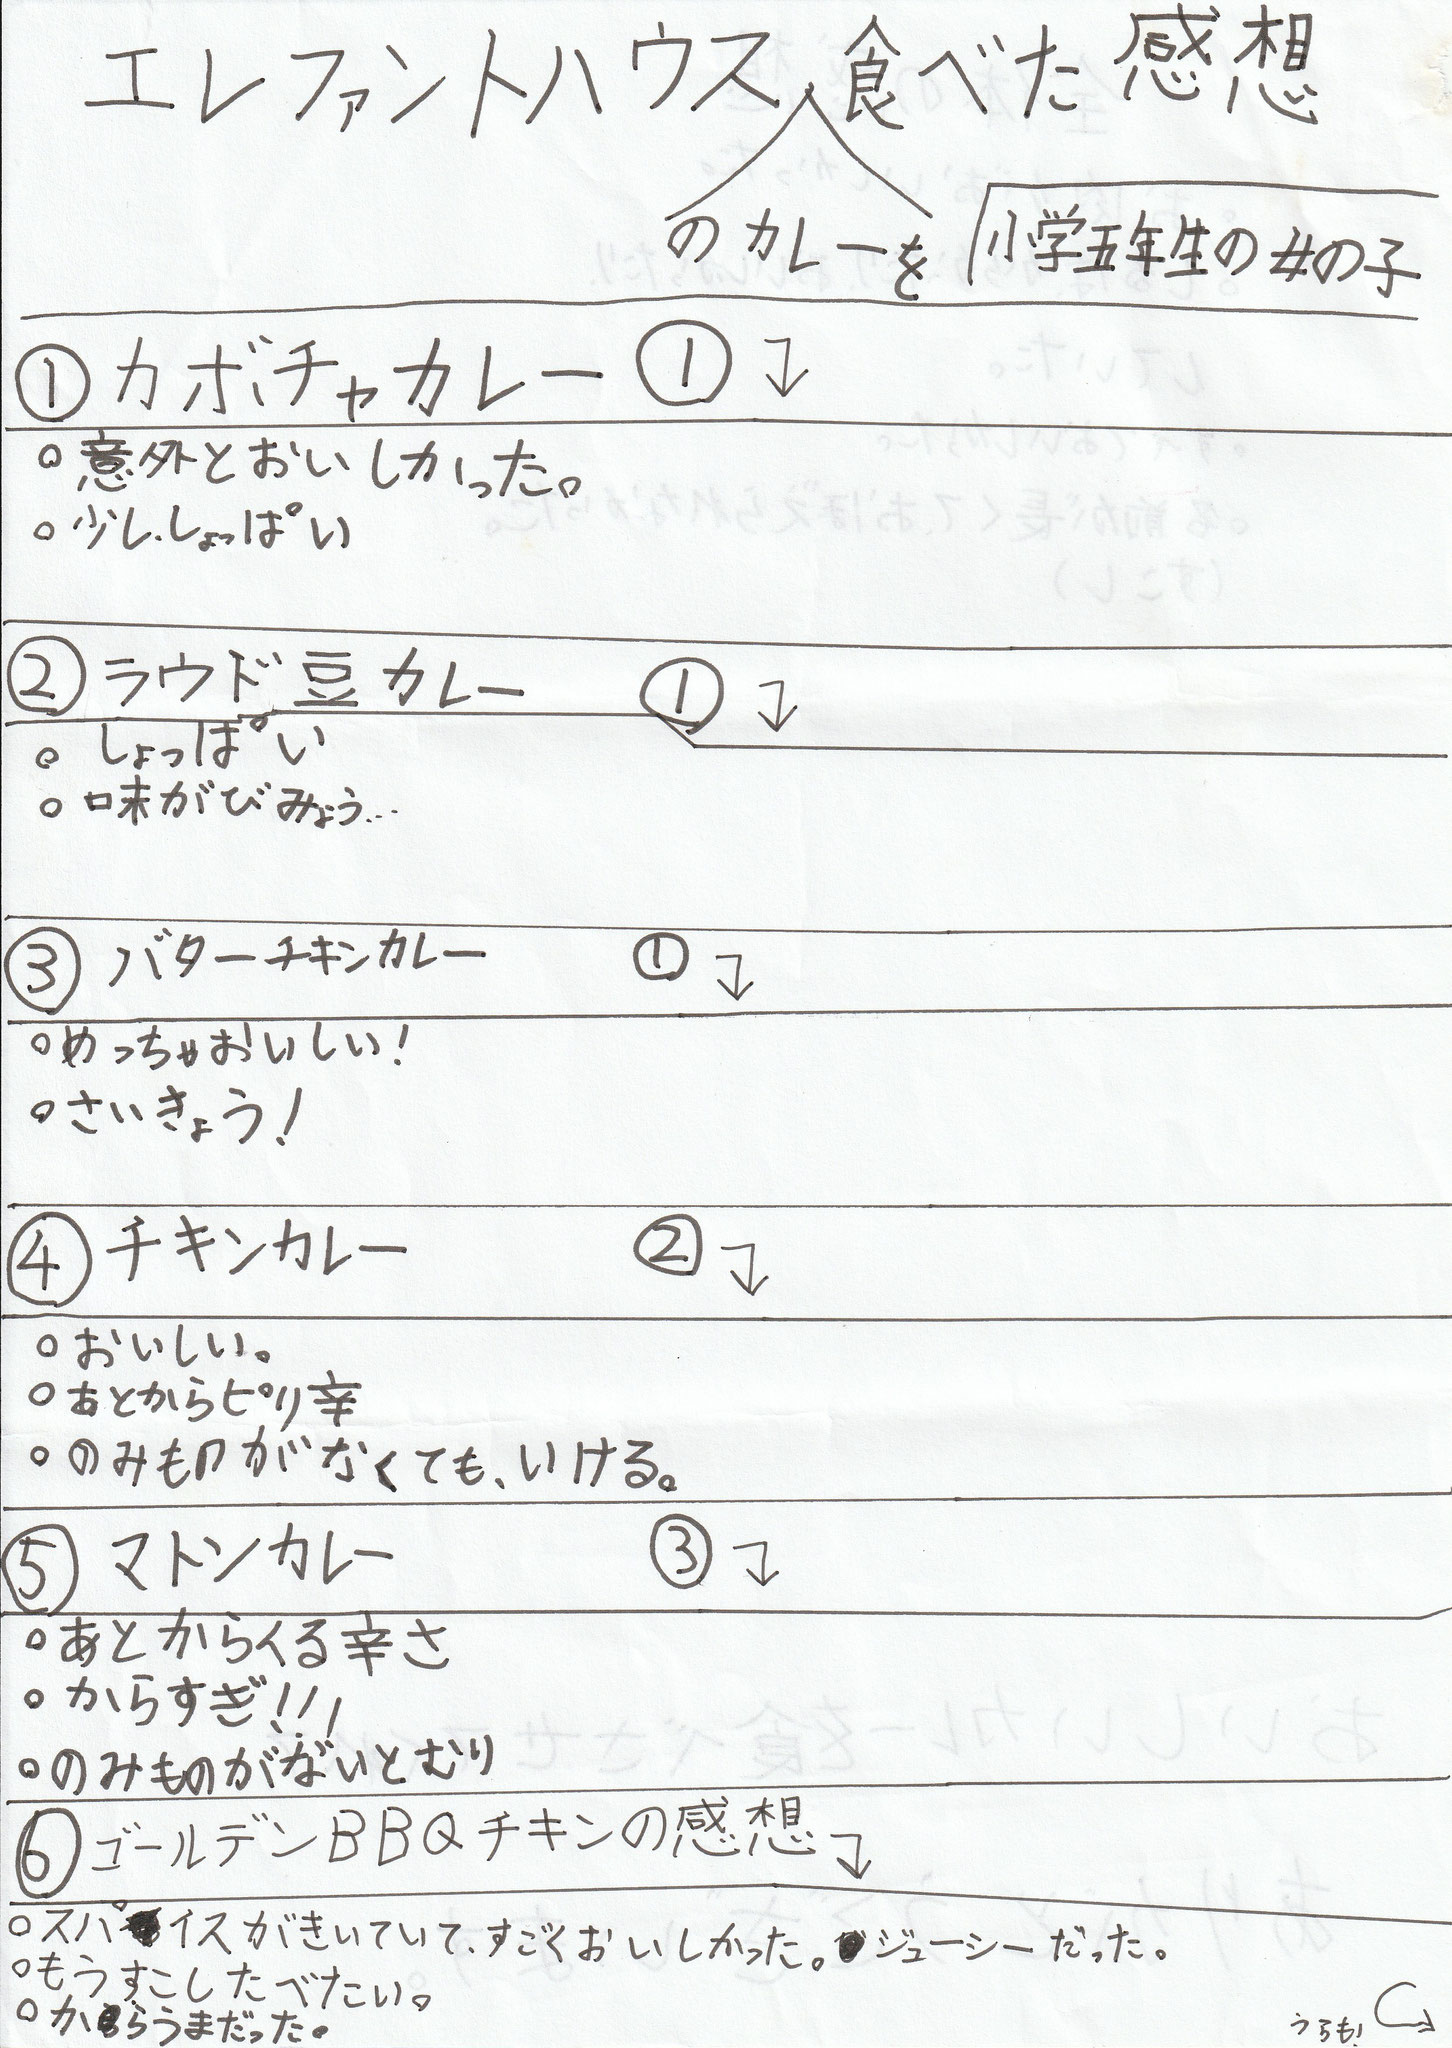 エレファントハウス食べた感想
のカレーを
小学五年生の女の子
① カボチャカレー ① ↴
○意外とおいしかった。
○少し.しょっぱい
② ラウド豆カレー ① ↴
○しょっぱい
○味がびみょう…
③ バターチキンカレー ① ↴
○めっちゃおいしい!
○さいきょう!
④ チキンカレー ② ↴
○おいしい。
○あとからピリ辛
○のみものがなくても、いける。
⑤ マトンカレー ③ ↴
○あとからくる辛さ
○からすぎ!!!
○のみものがないとむり
⑥ ゴールデンBBQチキンの感想 ↴
○スパイスがきいていて、すごくおいしかった。ジューシーだった。
○もうすこしたべたい。
○からうまだった。
うらも!